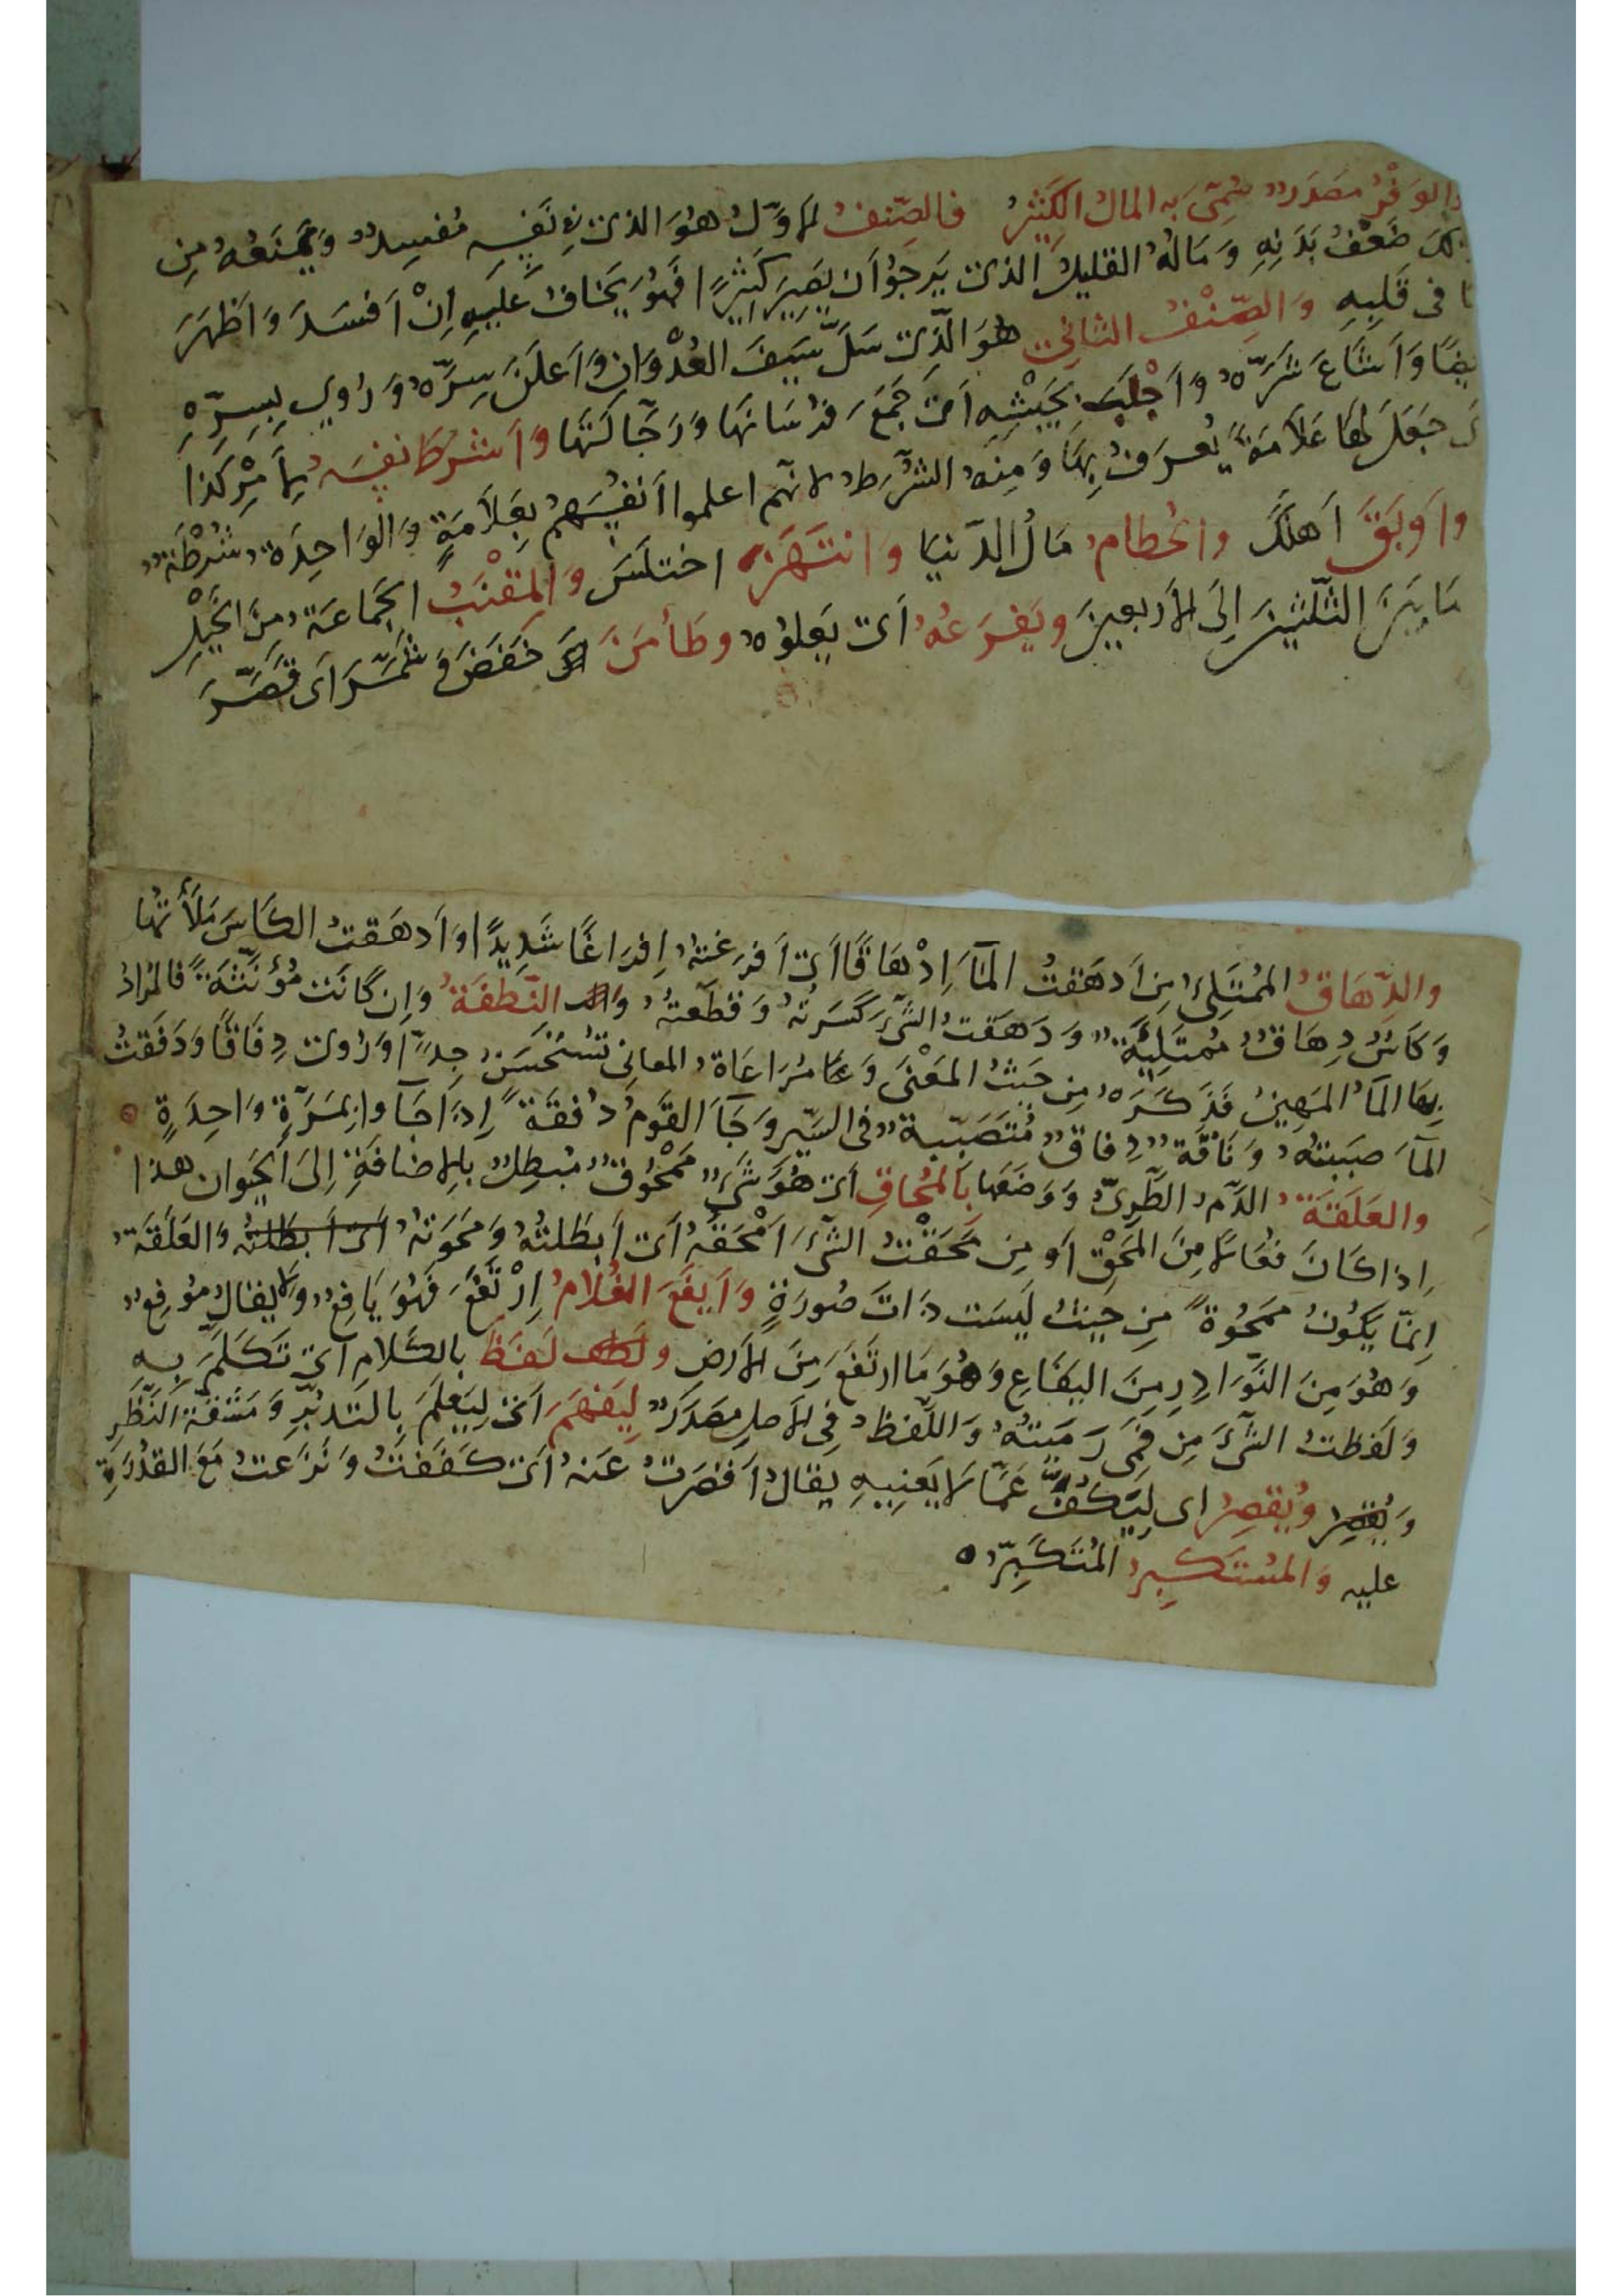 والوَفْرُ مصَدَرٌ سُمِّىَ بِه المالُ الكَثيْرُ فالصِّنفُ الأوّلُ هُوَ الذى فِى نَفْسِه مُفسِدٌ وَيَمنَعُهُ مِن
ذلكَ ضَعْفُ بَدَنِهِ وَمَالُهُ القليلُ الذى يَرجُوْ اَن يَصِيرَ كَثِيْرًا فَهُوَ يَخافُ عَلَيهِ اِنْ اَفسَدَ وَاَظهَرَ
مَا فى قَلبِهِ وَالصِّنْفُ الثانِى هُوَ الَّذِى سَلَّ سَيفَ العُدْوَانِ وَاَعلَنَ سِرَّهُ وَرُوِى بِسِرّهِ
اَيضًا وَاَشاعَ شَرَّهُ وَاَجْلَبَ بجَيْشِهِ اَى جَمَعَ فُرسَانَهَا وَرَجَّالَتَهَا وَاَشرَطَ نفسَهُ لِاَمْرِ كَذا
اَى جَعَلَ لهَا عَلَامَةً يُعرَفُ بِهَا وَمِنهُ الشُّرَطُ لانّهم اعلموا اَنفُسَهُمْ بعَلاَمَةٍ وَالوَاحِدَةُ شُرْطَةٌ
واَوبَقَ اَهلَكَ والحُطامُ مَالُ الدّنيَا وَانتَهَزَ اختلَسَ وَالمِقْنَبُ الجَماعَةُ مِنَ الخَيْلِ
مَا بَيْنَ الثّلثينَ اِلَى الاَربعينَ ويَفرَعُهُ اَى يَعلُوْهُ وطَأمَنَ اى خَفَضَ وَشَمَّرَ اَى قَصَّرَ
والدِّهَاقُ المُمْتَلِىُ مِن اَدهَقتُ المآءَ اِدْهَاقًا اَى اَفرَغتُهُ اِفرَاغًا شَدِيدًا وَاَدهَقتُ الكَاسَ مَلَأتُهَا
وَكَاسٌ دِهَاقٌ مُمتَلِيَةٌ وَدَهَقتُ الشَّىَ كَسَرتُهُ وَقطَعتُهُ وَالنّطفَةُ وَاِن كَانَت مُؤنّثَةً فالمُرَادُ
بِهَا المآءُ المَهِينُ فَذَكَّرَهُ مِن حَيثُ المَعْنَى وَمُرَاعَاةُ المعانِى تُسْتَحْسَنُ جِدًّا وَرُوِىَ دِفَاقًا وَدَفَقتُ
المآءَ صبَبتُهُ وَنَاقَةٌ دِفاقٌ مُتَصَبّبةٌ فى السّيرِ وَجَآءَ القَوْمُ دُفقَةً اِذَا جَآءوا بِمَرَّةٍ وَاحِدَةٍ
والعَلَقَةُ الدَّمُ الطَّرِىُّ وَوَصَفَها بالمُحاقِ اَى هُوَ شَىءٌ مَمْحُوقٌ مُبطِلٌ بِالاِضَافَةِ اِلَى الحَيَوانِ هذا
اِذا كَانَ فُعَالا مِنَ المَحْقِ اَو مِن مَحَقْتُ الشَّىَ اَمْحَقُهُ اَى اَبطَلتُهُ وَمَحَوتُهُ اَى اَبطَلتُه وَالعَلَقَةُ
اِنّمَا يَكُونُ مَمحُوةً مِن حَيثُ لَيسَت ذَاتَ صُورَةٍ وَاَيفَعَ الغُلامُ اِرْتَفَعَ فَهُوَ يَافِعٌ وَلا يقالُ مُوفِعٌ
وَهُوَ مِنَ النّوَادِرِ مِنَ اليَفَاعِ وَهُوَ مَا ارتَفَعَ مِنَ الارضِ ولَفَظَ بالكَلامِ اَى تَكَلّمَ بِهِ
وَلَفظتُ الشّىَ مِن فَمِى رَمَيتُهُ وَاللّفظُ فِى الاَصلِ مَصدَرٌ لِيَفهَمَ اَى لِيَعلَمَ بالتّدَبّرِ وَمَشَقّةِ النّظَرِ
وَيُقصِرُ وُيُقصِرُ اى لِيَكُفَّ عَمّا لا يَعنِيهِ يقالُ اَقصَرتُ عَنهُ اَى كَفَفتُ وَنَزَعتُ مَعَ القُدْرَةِ
عليه وَالمُستَكبِرُ المُتَكَبِّرُ